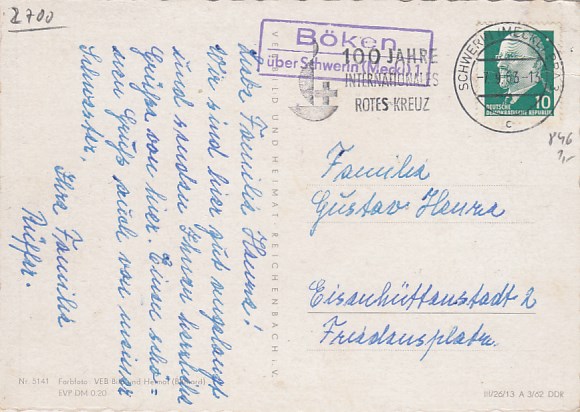 2700
Böken
über Schwerin (Meckl) 1
100 JAHRE
INTERNATIONALES
ROTES KREUZ
SCHWERIN (MECKL)
63-13
c
10
DEUTSCHE
DEMOKRATISCHE REPUBLIK
846
1,-
Liebe Familie
Wir sind hier gut angelangt
und senden Ihnen herzliche
Grüße von hier. Einen schö=
nen Gruß auch von meiner
Schwester.
Ihre Familie
VEB BILD UND HEIMAT REICHENBACH i. V.
Familie
Gustav
Eisenhüttenstadt 2
Friedensplatz.
Nr. 5141 Farbfoto: VEB Bild und Heimat
EVP DM 0.20
III/26/13 A 3/62 DDR